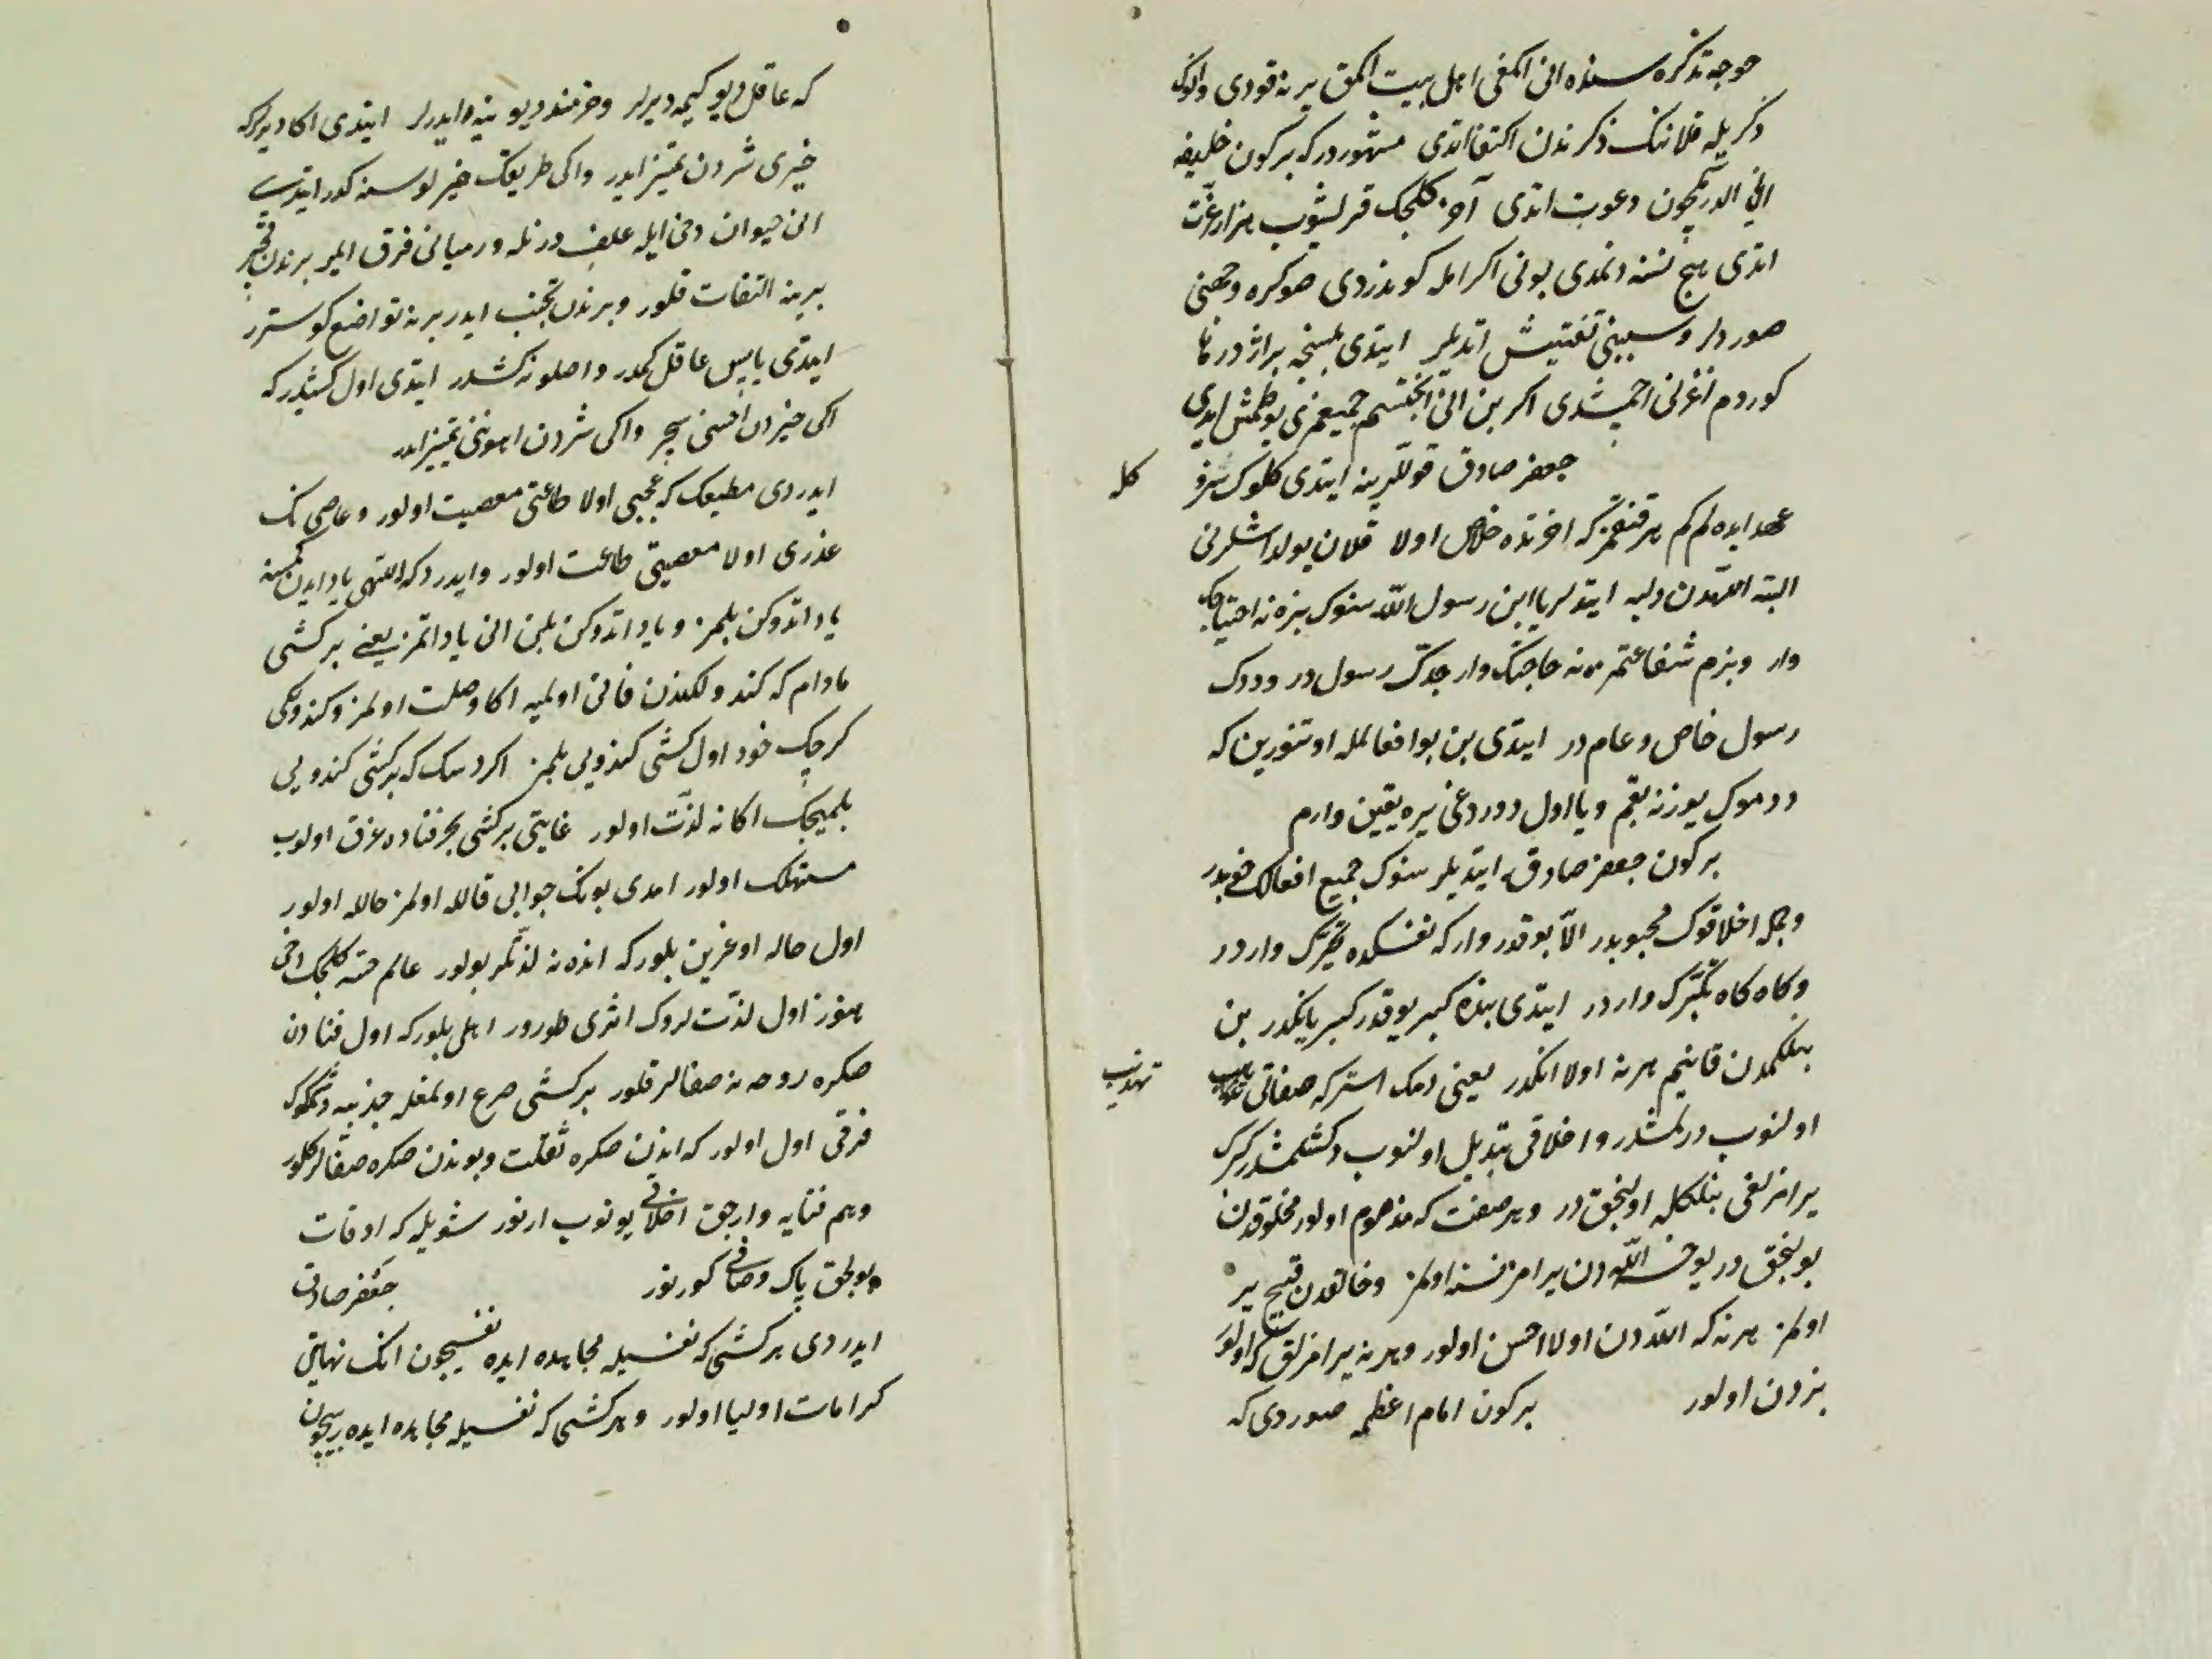 خوجه تذکره سنده انی اکمغی اهل بیت اکمق یرنه قودی وانوک
ذکریله قلاننک ذکرندن اکتفا اتدی مشهور درکه برکون خلیفه
انی الدرمکچون دعوت اتدی آخر کلجک قرلشوب هزار عزّت
اتدی هیچ نسنه دنمدی بونی اکرامله کوندردی صوکره وجهنی
صوردلر وسببنی تفتیش اتدیلر ایتدی بلنجه بر اژدرها
کوردم اغزنی اچمشدی اکر بن انی انجتسم جمیعمزی یوطمش ایدی
جعفر صادق قوللرینه ایتدی کلوک سزو
کله
عهد ایده لم کم هر قنغمز که اخرتده خلاص اولا قلان یولداشلرنی
البته اللّهدن دلیه ایتدلر یا ابن رسول اللّه سنوک بزه نه احتیاجک
وار وبزم شفاعتمزه نه حاجتک وار جدّک رسول در وددک
رسول خاص وعام در ایتدی بن بو افعالمله اوتنورین که
ددموک یوزنه بقم ویا اول دوردغی یره یقین وارم
برکون جعفر صادق ایتدیلر سنوک جمیع افعالک خوبدر
وجمله اخلاقوک محبوبدر الّا بوقدر وار که نفسکده تکبّرک واردر
وکاه کاه تکبّرک واردر ایتدی بنده کبر یوقدر کبریانکدر بن
بنلکمدن فانیم هر نه اولا انکدر یعنی دمک استرکه صفاتی تهذیب
تهذیب
اولنوب درلمشدر واخلاقی تبدیل اولنوب دکشلمشدر کبرک
یرامزلغی بنلکله اولیجق در وهر صفت که مذموم اولور مخلوقدن
بولیجق در یوخسه اللّه دن یرامز نسنه اولمز وخالقدن قبیح یر
اولمز هر نه که اللّه دن اولا احسن اولور وهر نه یرامزلق که اولور
بزدن اولور برکون امام اعظمه صوردی که
که عاقل دیو کیمه دیرلر وخرمند دیو نیه دایدرلر ایتدی اکا دیرلرکه
خیری شردن تمییز ایدر واکی طریقک خیرلوسنه کورر ایتدی
انی حیوان دخی ایله علف ورنله ورمیانی فرق ایلر برندن قچر
برینه التفات قلور وبرندن تجنب ایدر برنه تواضع کوسترر
ایتدی یا پس عاقل کمدر واصلو نه کشدر ایتدی اول کشیدرکه
اکی خیردن احسنی سچر واکی شردن اهوننی تمییز ایدر
ایدردی مطیعک که عجبی اولا طاعتی معصیت اولور وعاصی نک
عذری اولا معصیتی طاعت اولور وایدردکه اللّهی یاد ایدن کمسنه
یاد اتدوکن بلمز ویاد اتدوکن بلن انی یاد اتمز یعنی بر کشی
مادام که کندولکندن فانی اولمیه اکا وصلت اولمز وکندولکی
کرچک خود اول کشی کندویی بلمز اکر دسک که بر کشی کندویی
بلمیجک اکا نه لذّت اولور غایتی بر کشی بحر فناده غرق اولوب
مستهلک اولور امدی بونک جوابی قالله اولمز حالله اولور
اول حاله اوغرین بلورکه انده نه لذّتلر بولور عالم حسّه کلجک دخی
هنوز اول لذّت لروک اثری طورور اهلی بلورکه اول فنادن
صکره روحه نه صفالر قلور بر کشی صرع اولمغله جذبیه دشمکوک
فرقی اول اولور که اندن صکره ثقلت وبوندن صکره صفالر کلور
وهم فنایه وارجق اخلاقی یونوب ارنور شویله که اوقات
وبولجق پاک وصافی کورنور جعفر صادق
ایدردی بر کشی که نفسیله مجاهده ایده نفسیچون انک نهایتی
کرامات اولیا اولور وهر کشی که نفسیله مجاهده ایده ربیچون